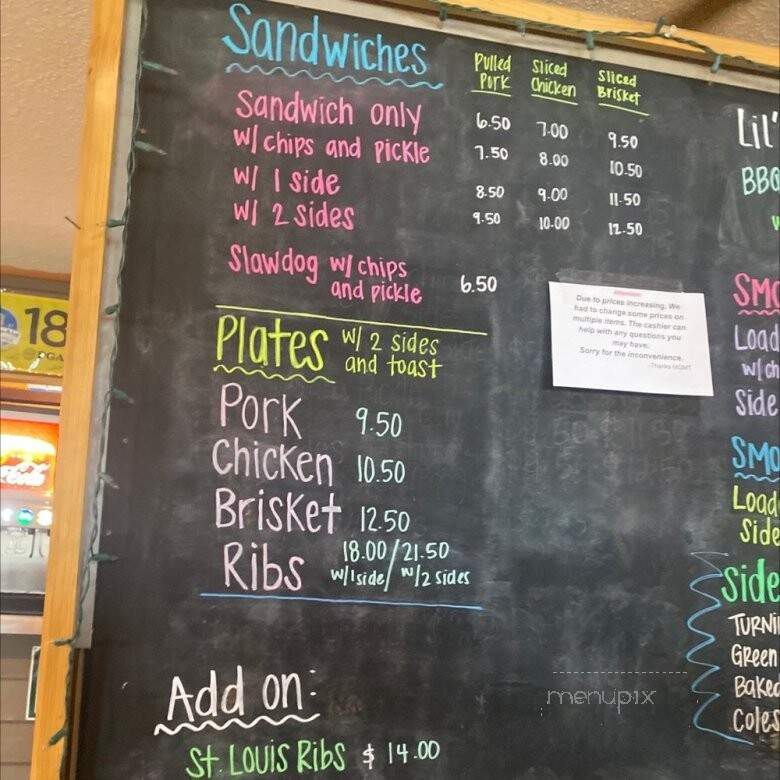 Sandwiches
Pulled Pork
Sliced Chicken
Sliced Brisket
Sandwich only 6.50 7.00 9.50
w/ chips and pickle 7.50 8.00 10.50
w/ 1 side 8.50 9.00 11.50
w/ 2 sides 9.50 10.00 12.50
Slawdog w/ chips
and pickle 6.50
Attention:
Due to prices increasing. We
had to change some prices on
multiple items. The cashier can
help with any questions you
may have.
Sorry for the inconvenience.
-Thanks MGMT
Plates w/ 2 sides
and toast
Pork 9.50
Chicken 10.50
Brisket 12.50
Ribs 18.00/21.50
w/1side/ w/2 sides
Add on:
St. Louis Ribs $ 14.00
Lil'
BBQ
Load
w/ch
Side
Load
Side
Side
Green
Baked
Coles
18
menupix